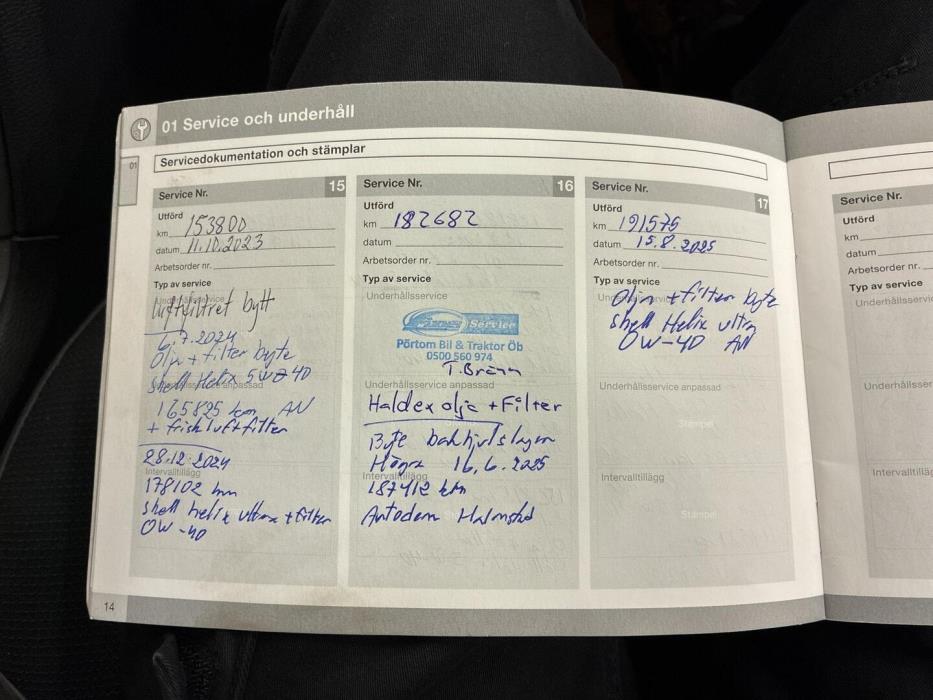 01 Service och underhåll
01
Servicedokumentation och stämplar
Service Nr. 15
Utförd
km 153800
datum 11.10.2023
Arbetsorder nr.
Typ av service
Underhållsservice
Luftfiltret bytt
6.7.2024
Olja + filter byte
Shell Helix 5W-40
Underhållsservice anpassad
165825 km AN
+ friskluftfilter
28.12.2024
Intervalltillägg
178102 km
Shell helix ultra + filter
0W-40
Service Nr. 16
Utförd
km 182682
datum
Arbetsorder nr.
Typ av service
Underhållsservice
Service
Pörtom Bil & Traktor Öb
0500 560 974
T. Bränn
Underhållsservice anpassad
Haldex olja + Filter
Stämpel
Byte bakhjulslager
Högra 16.6.2025
Intervalltillägg
187412 km
Autodem Halmstad
Service Nr. 17
Utförd
km 191575
datum 15.8.2025
Arbetsorder nr.
Typ av service
Underhållsservice
Olja + filter byte
Shell Helix ultra
0W-40 AN
Underhållsservice anpassad
Stämpel
Intervalltillägg
Stämpel
Service Nr.
Utförd
km
datum
Arbetsorder nr.
Typ av service
Underhållsservice
Underhållsser
Intervalltilläg
14